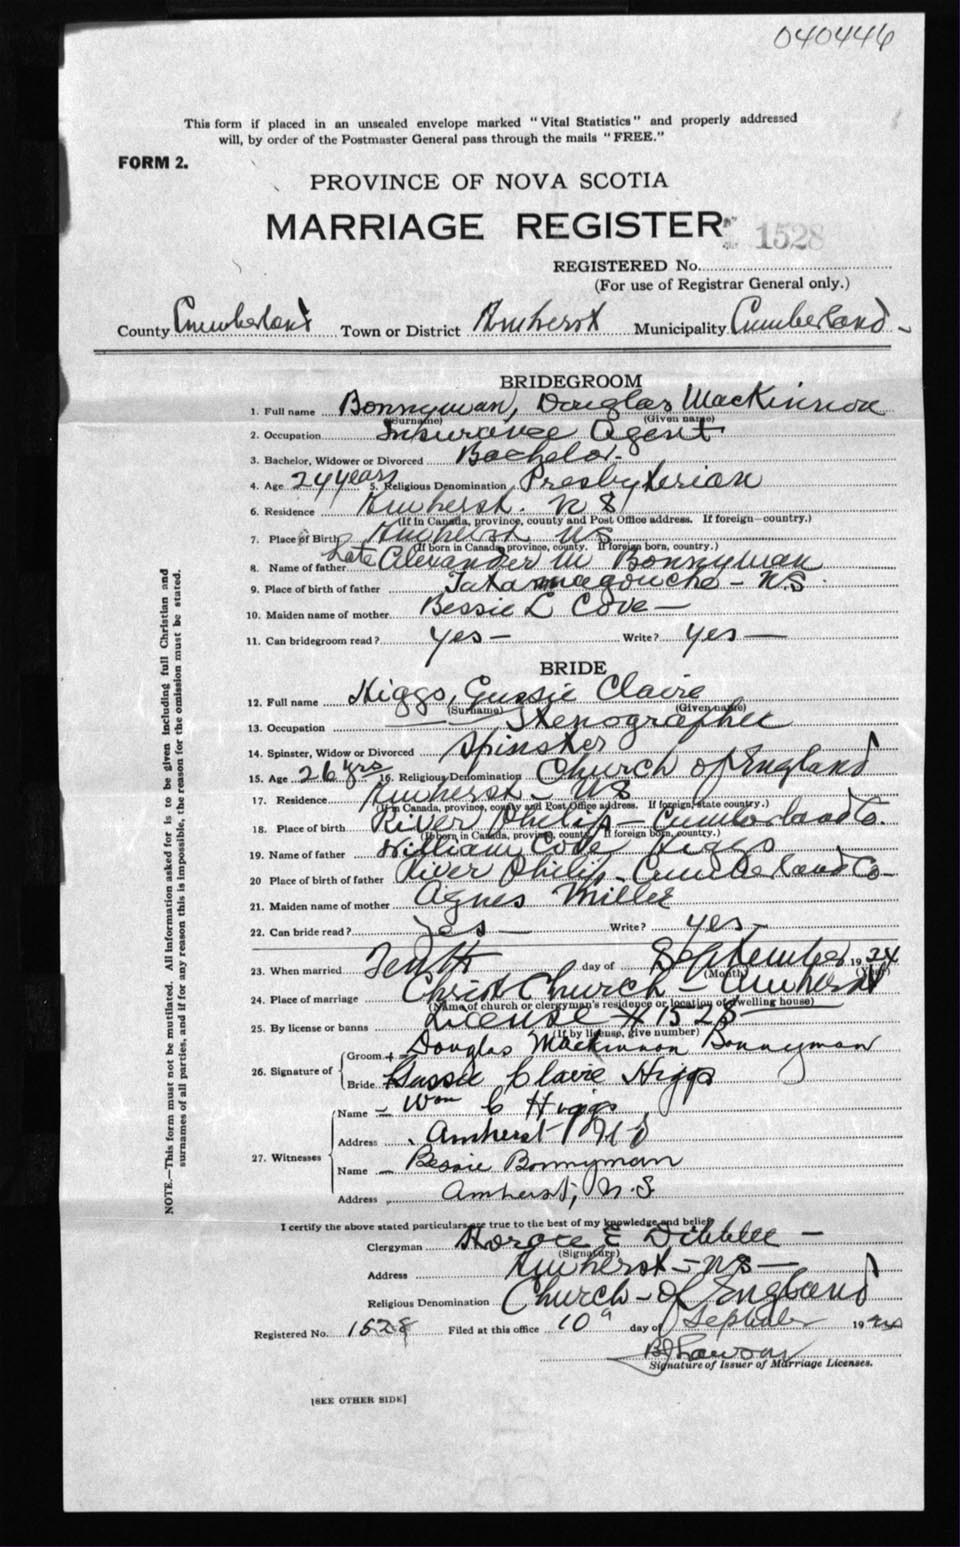 040446
This form if placed in an unsealed envelope marked "Vital Statistics" and properly addressed
will, by order of the Postmaster General pass through the mails "FREE."
FORM 2.
PROVINCE OF NOVA SCOTIA
MARRIAGE REGISTER
1528
REGISTERED No.
(For use of Registrar General only.)
County Cumberland Town or District Amherst Municipality Cumberland
BRIDEGROOM
1. Full name Bonnyman, Douglas MacKinnon
(Surname) (Given name)
2. Occupation Insurance Agent
3. Bachelor, Widower or Divorced Bachelor.
4. Age 24 years 5. Religious Denomination Presbyterian
6. Residence Amherst. N S
(If in Canada, province, county and Post Office address. If foreign—country.)
7. Place of Birth Amherst NS
(If born in Canada, province, county. If foreign born, country.)
8. Name of father Late Alexander M Bonnyman
9. Place of birth of father Tatamagouche - N.S.
10. Maiden name of mother Bessie L Cove —
11. Can bridegroom read? Yes — Write? Yes —
BRIDE
12. Full name Higgs, Gussie Claire
(Surname) (Given name)
13. Occupation Stenographer
14. Spinster, Widow or Divorced Spinster
15. Age 26 yrs 16. Religious Denomination Church of England
17. Residence Amherst - NS
(If in Canada, province, county and Post Office address. If foreign, state country.)
18. Place of birth River Philip - Cumberland Co.
(If born in Canada, province, county. If foreign born, country.)
19. Name of father William Cove Higgs
20 Place of birth of father River Philip - Cumberland Co -
21. Maiden name of mother Agnes Miller
22. Can bride read? Yes — Write? Yes -
23. When married Tenth day of September 1924
(Month) (Year)
24. Place of marriage Christ Church - Amherst
(Name of church or clergyman's residence or location of dwelling house)
25. By license or banns License # 1528
(If by license, give number)
26. Signature of Groom Douglas MacKinnon Bonnyman
Bride Gussie Claire Higgs
27. Witnesses Name - Wm C Higgs
Address Amherst N S
Name - Bessie Bonnyman
Address Amherst, N.S.
I certify the above stated particulars are true to the best of my knowledge and belief
Clergyman Horace E Dibblee —
(Signature)
Address Amherst - NS —
Religious Denomination Church - of England
Registered No. 1528 Filed at this office 10 day of 1924
Signature of Issuer of Marriage Licenses.
[SEE OTHER SIDE]
NOTE.—This form must not be mutilated. All information asked for is to be given including full Christian and
surnames of all parties, and if for any reason this is impossible, the reason for the omission must be stated.